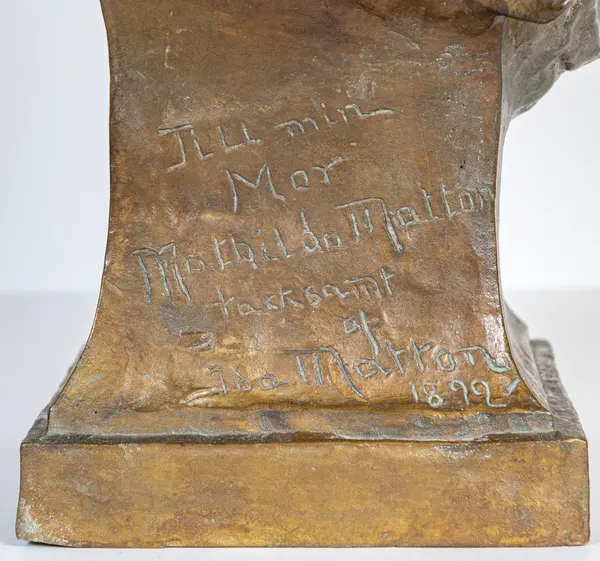 Till min
Mor
Mathilda Matton
tacksamt
af
Ida Matton
1892